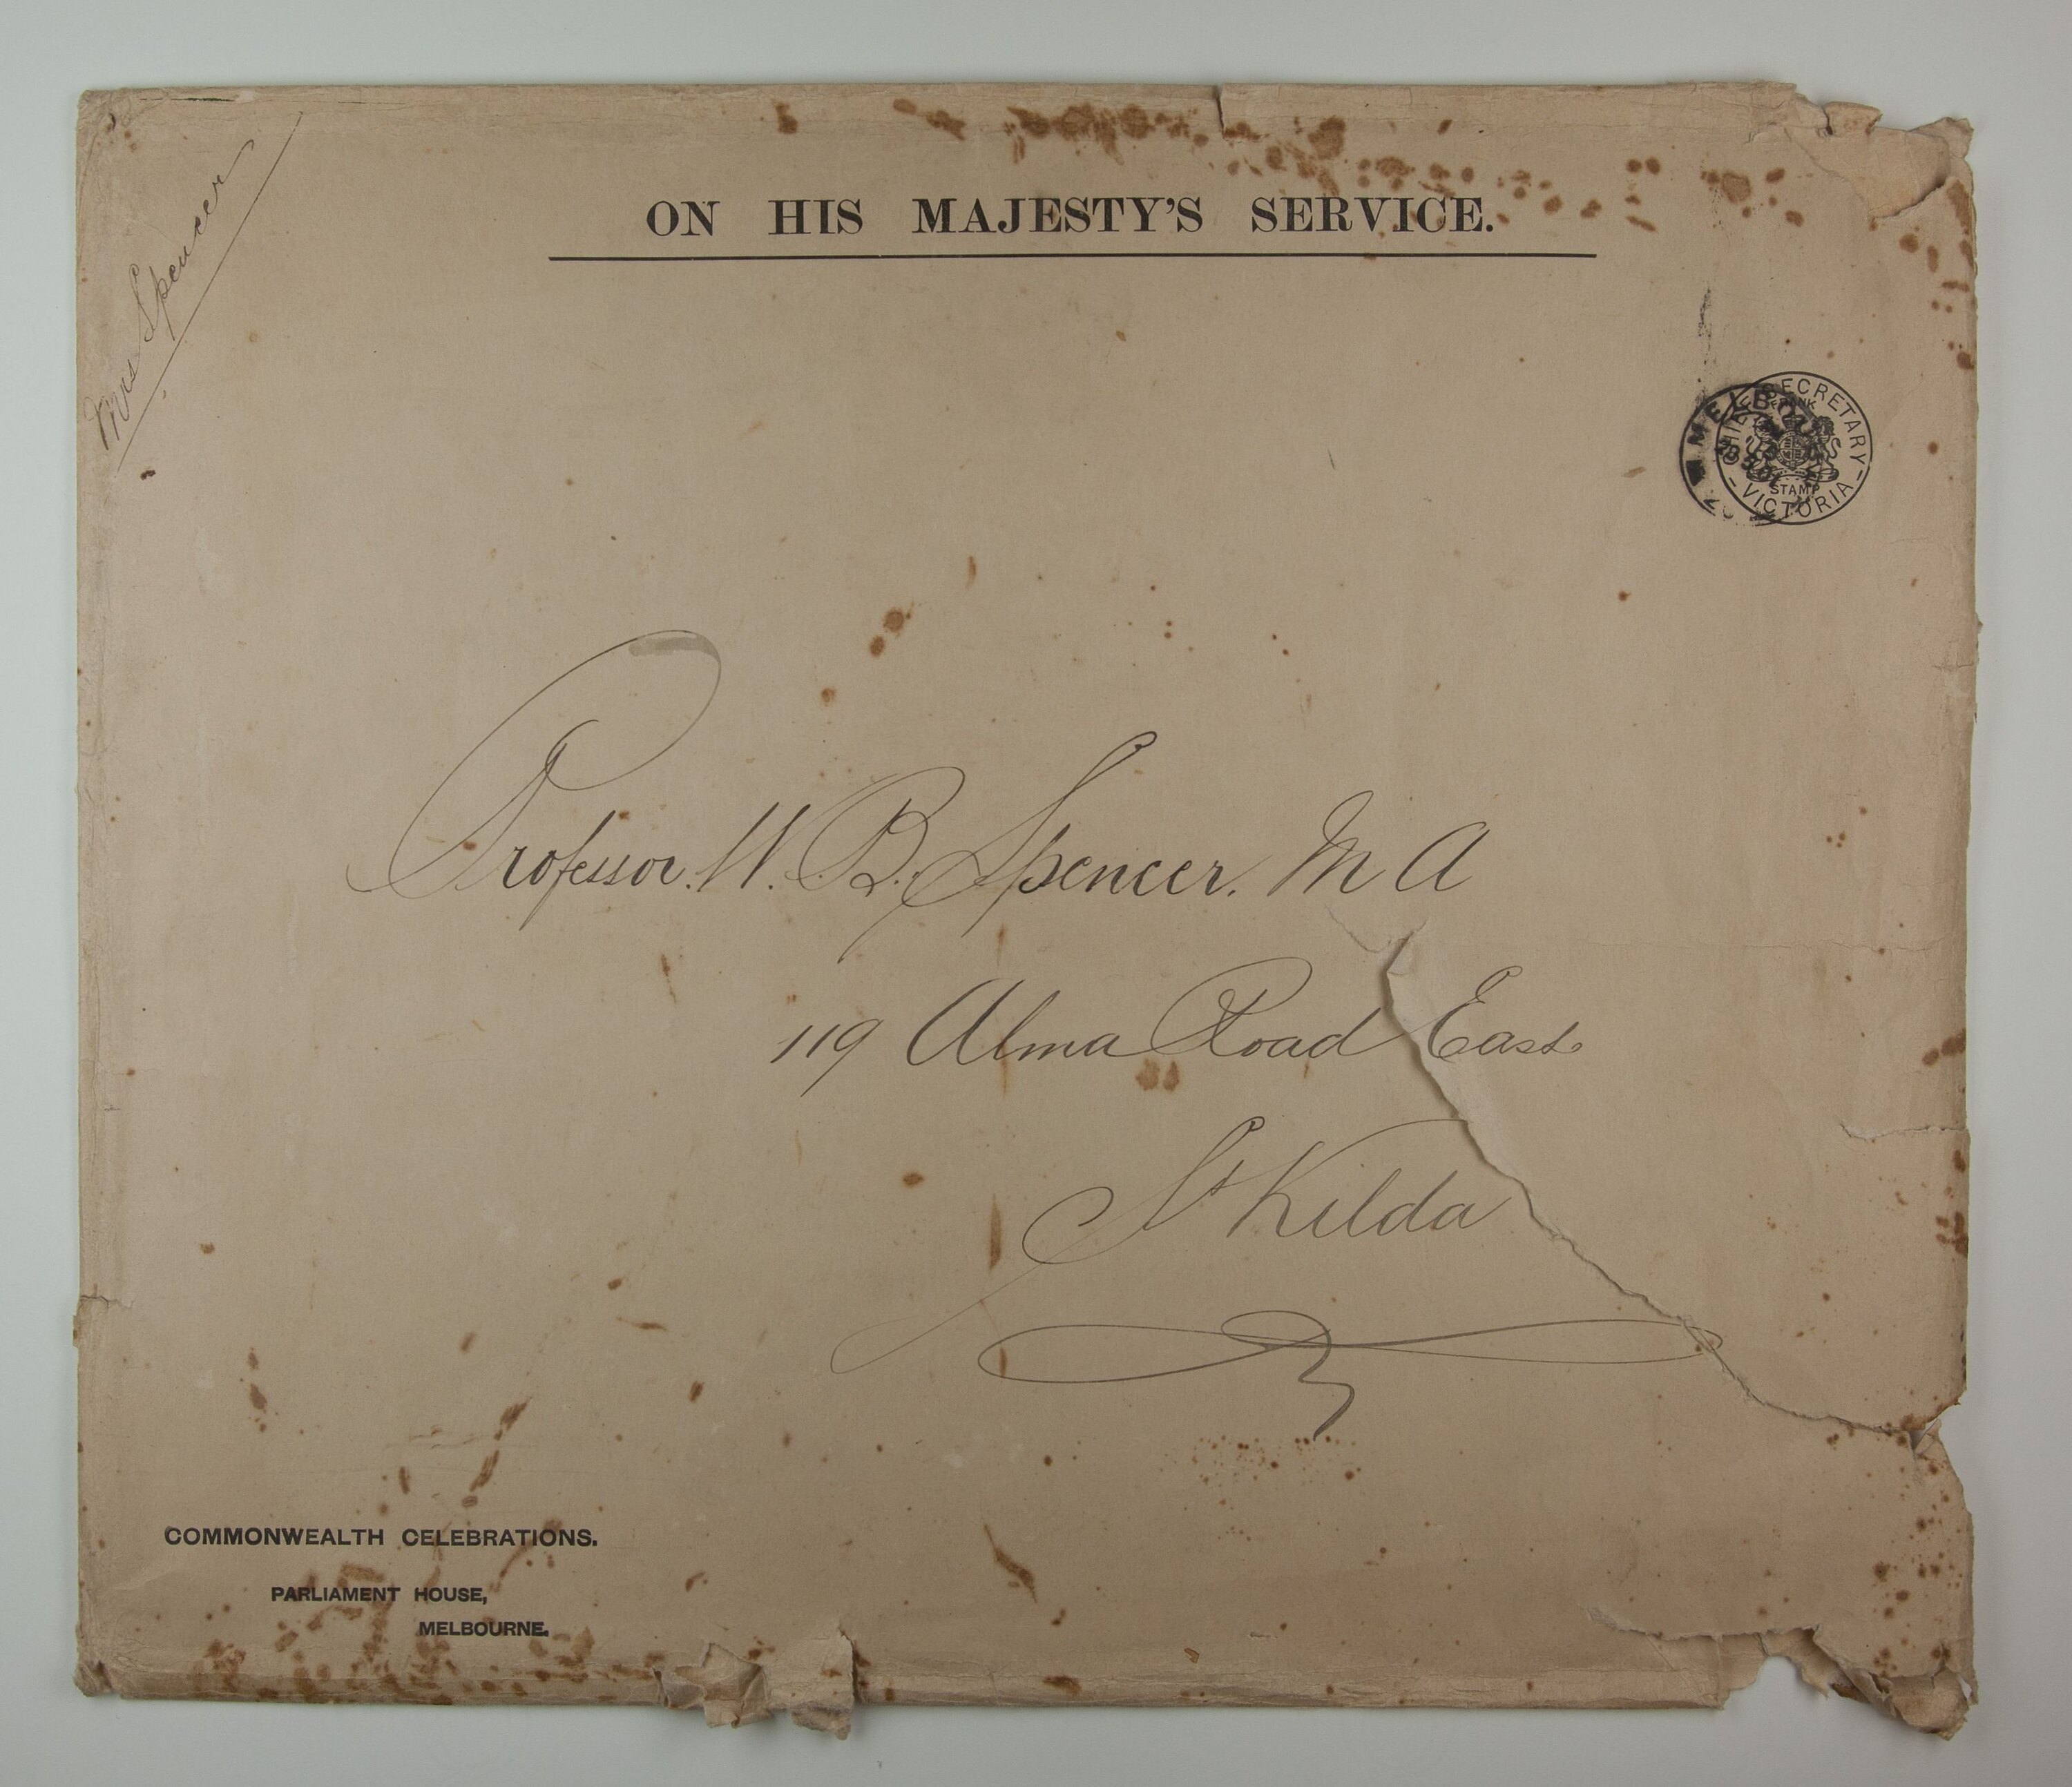 Mrs Spencer
ON HIS MAJESTY'S SERVICE.
CHIEF SECRETARY
FRANK
STAMP
VICTORIA
MELBO
Professor. W. B. Spencer. M A
119 Alma Road East
St Kilda
COMMONWEALTH CELEBRATIONS.
PARLIAMENT HOUSE,
MELBOURNE.